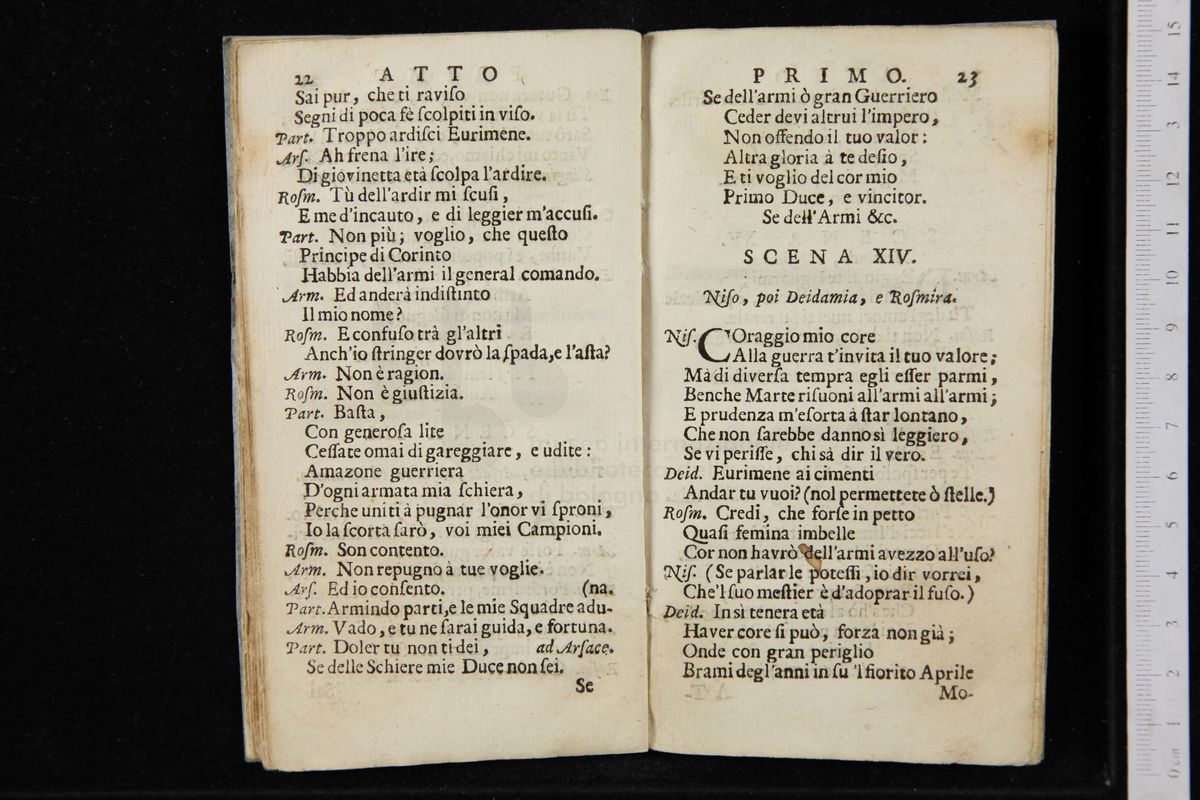 22 ATTO
Sai pur, che ti raviſo
Segni di poca fè ſcolpiti in viſo.
Part. Troppo ardiſci Eurimene.
Arſ. Ah frena l'ire;
Di giovinetta età ſcolpa l'ardire.
Roſm. Tù dell'ardir mi ſcuſi,
E me d'incauto, e di leggier m'accuſi.
Part. Non più; voglio, che queſto
Principe di Corinto
Habbia dell'armi il general comando.
Arm. Ed anderà indiſtinto
Il mio nome?
Roſm. E confuſo trà gl'altri
Anch'io ſtringer dovrò la ſpada, e l'aſta?
Arm. Non è ragion.
Roſm. Non è giuſtizia.
Part. Baſta,
Con generoſa lite
Ceſſate omai di gareggiare, e udite:
Amazone guerriera
D'ogni armata mia ſchiera,
Perche uniti à pugnar l'onor vi ſproni,
Io la ſcorta ſarò, voi miei Campioni.
Roſm. Son contento.
Arm. Non repugno à tue voglie.
Arſ. Ed io conſento. (na.
Part. Armindo parti, e le mie Squadre adu-
Arm. Vado, e tu ne ſarai guida, e fortuna.
Part. Doler tu non ti dei, ad Arſace.
Se delle Schiere mie Duce non ſei.
Se
PRIMO. 23
Se dell'armi ò gran Guerriero
Ceder devi altrui l'impero,
Non offendo il tuo valor:
Altra gloria à te deſio,
E ti voglio del cor mio
Primo Duce, e vincitor.
Se dell'Armi &c.
SCENA XIV.
Niſo, poi Deidamia, e Roſmira.
Niſ. COraggio mio core
Alla guerra t'invita il tuo valore;
Mà di diverſa tempra egli eſſer parmi,
Benche Marte riſuoni all'armi all'armi;
E prudenza m'eſorta à ſtar lontano,
Che non ſarebbe danno sì leggiero,
Se vi periſſe, chi sà dir il vero.
Deid. Eurimene ai cimenti
Andar tu vuoi? (nol permettete ò ſtelle.)
Roſm. Credi, che forſe in petto
Quaſi femina imbelle
Cor non havrò dell'armi avezzo all'uſo?
Niſ. (Se parlar le poteſſi, io dir vorrei,
Che'l ſuo meſtier è d'adoprar il fuſo.)
Deid. In sì tenera età
Haver core ſi può, forza non già;
Onde con gran periglio
Brami degl'anni in ſu 'l fiorito Aprile
Mo-